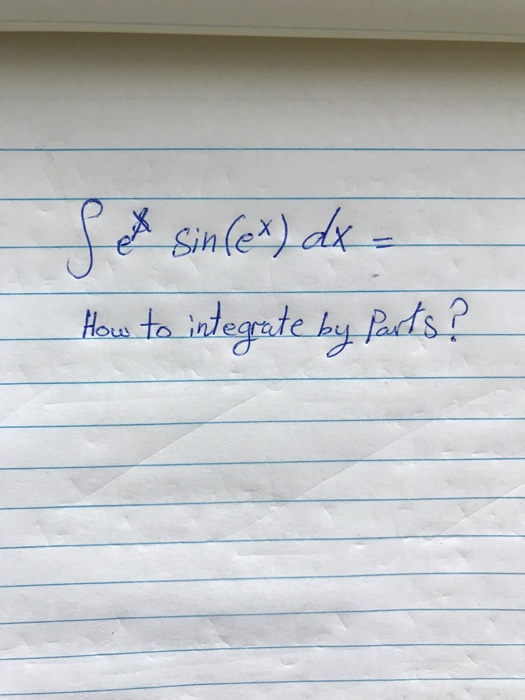 ∫ eˣ sin(eˣ) dx =
How to integrate by Parts?